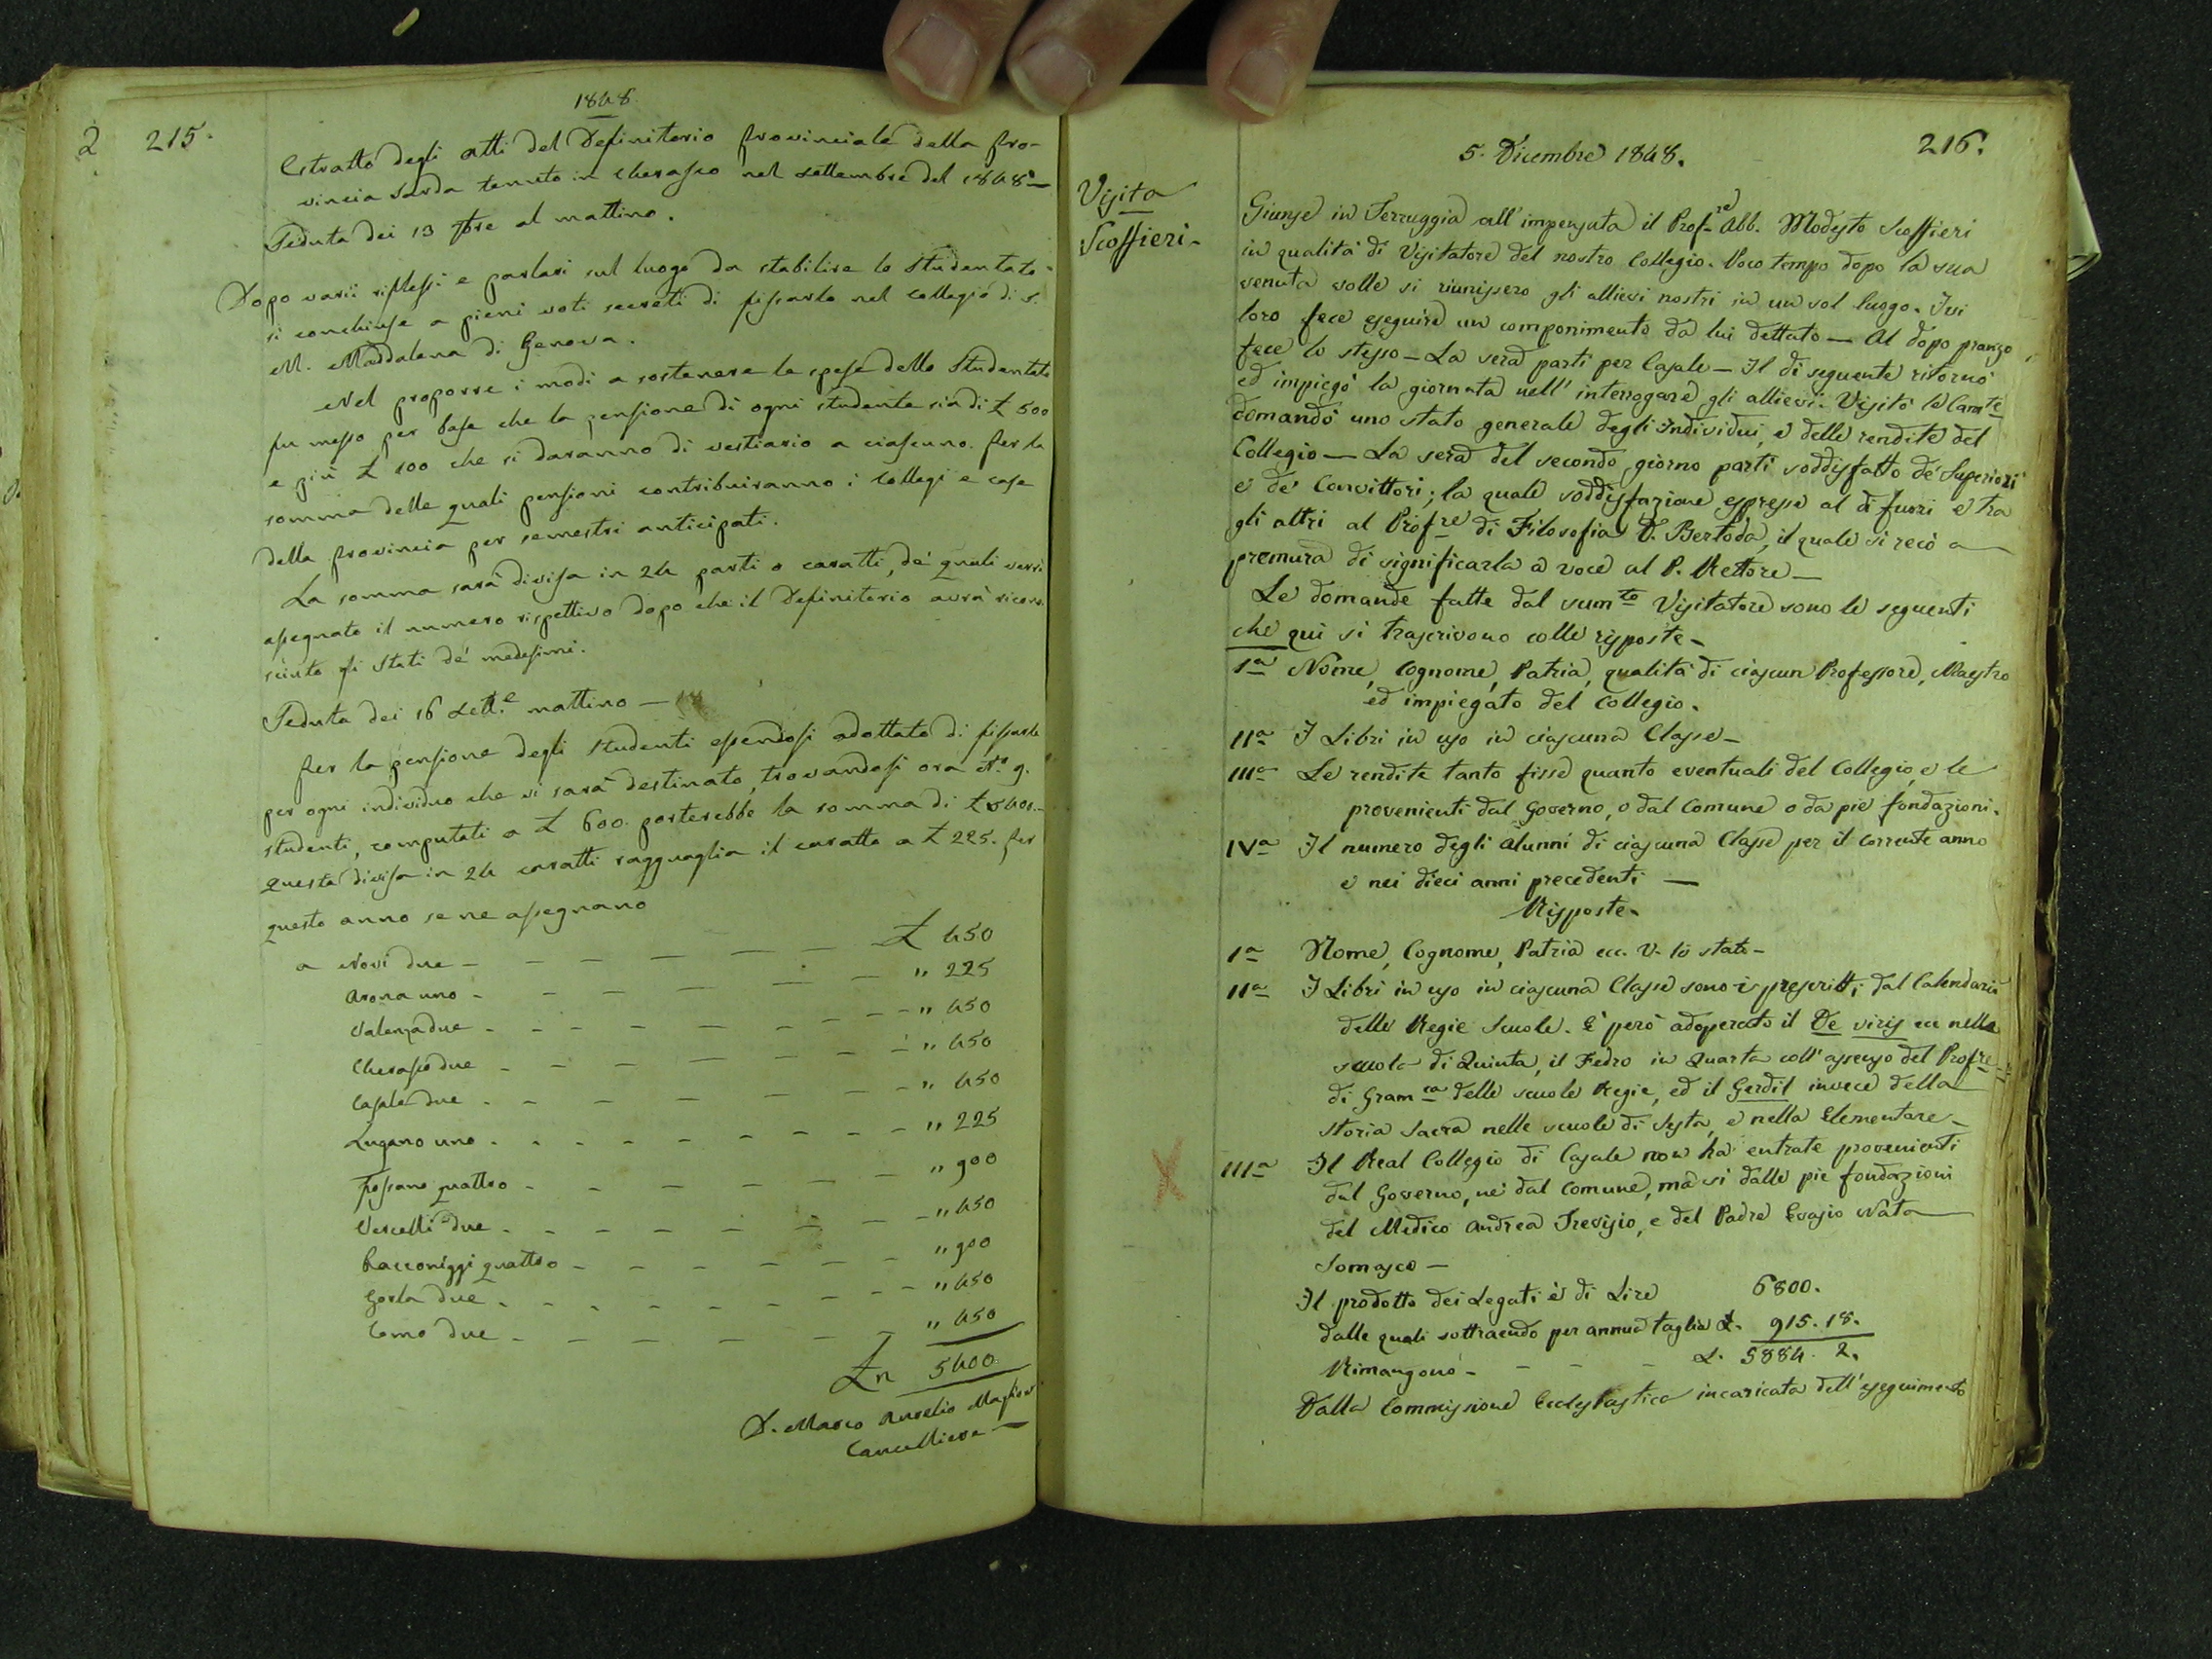 2 215.
1848
Estratto degli atti del Definitorio provinciale della pro-
vincia sarda tenuto in Cherasco nel settembre del 1848 —
Seduta dei 13 7bre al mattino.
Dopo varii riflessi e parlari sul luogo da stabilire lo Studentato
si conchiuse a pieni voti secreti di fissarlo nel collegio di S.
M. Maddalena di Genova.
Nel proporre i modi a sostenere le spese dello Studentato
fu messo per base che la pensione di ogni studente sia di £ 500
e più £ 100 che si daranno di vestiario a ciascuno. Per la
somma delle quali pensioni contribuiranno i Collegi e case
della provincia per semestri anticipati.
La somma sarà divisa in 24 parti o caratti, de' quali verrà
assegnato il numero rispettivo dopo che il Definitorio avrà ricono-
sciuto gli Stati de' medesimi.
Seduta dei 16 Sett.e mattino —
Per la pensione degli studenti essendosi adottato di fissarla
per ogni individuo che vi sarà destinato, trovandosi ora N.o 9.
studenti, computati a £ 600. porterebbe la somma di £ 5400. -
Questa divisa in 24 caratti ragguaglia il caratto a £ 225. per
questo anno se ne assegnano
a Novi due - £ 450
Arona uno - " 225
Valenza due - " 450
Cherasco due - " 450
Casale due - " 450
Lugano uno - " 225
Fossano quattro - " 900
Vercelli due - " 450
Racconiggi quattro - " 900
Gorla due - " 450
Como due - " 450
£n 5400
D. Marco Aurelio
Cancelliere —
216.
5. Dicembre 1848.
Visita
Scoffieri -
Giunse in Terruggia all' impensata il Prof.re Abb. Modesto Scoffieri
in qualità di Visitatore del nostro Collegio. Poco tempo dopo la sua
venuta volle si riunissero gli allievi nostri in un sol luogo. Ivi
loro fece eseguire un componimento da lui dettato — Al dopo pranzo
fece lo stesso - La sera partì per Casale - Il dì seguente ritornò
ed impiegò la giornata nell' interrogare gli allievi. Visitò le Cam.te
domandò uno stato generale degli Individui, e delle rendite del
Collegio — La sera del secondo giorno partì soddisfatto de' Superiori
e de' Convittori; la quale soddisfazione espresse al di fuori e tra
gli altri al Prof.re di Filosofia D. Bertoda, il quale si recò a
premura di significarla a voce al P. Rettore —
Le domande fatte dal sum.to Visitatore sono le seguenti
che qui si trascrivono colle risposte -
Ia Nome, Cognome, Patria, qualità di ciascun Professore, Maestro
ed impiegato del Collegio.
IIa I Libri in uso in ciascuna Classe -
IIIa Le rendite tanto fisse quanto eventuali del Collegio, e le
provenienti dal Governo, o dal Comune o da pie fondazioni.
IVa Il numero degli Alunni di ciascuna Classe per il corrente anno
e nei dieci anni precedenti —
Risposte -
Ia Nome, Cognome, Patria ecc. V. lo stato -
IIa I Libri in uso in ciascuna Classe sono i prescritti dal Calendario
delle Regie Scuole. È però adoperato il De viris ecc nella
scuola di Quinta, il Fedro in Quarta coll' assenso del Prof.re
di Gram.ca delle scuole Regie, ed il Gerdil invece della
storia Sacra nelle scuole di Sesta, e nella Elementare -
IIIa Il Real Collegio di Casale non ha entrate provenienti
dal Governo, nè dal Comune, ma sì dalle pie fondazioni
del Medico Andrea Trevisio, e del Padre Evasio Natta
Somasco —
Il prodotto dei Legati è di Lire 6800.
dalle quali sottraendo per annua taglia £. 915. 18.
Rimangono - £. 5884. 2.
Dalla Commissione Ecclesiastica incaricata dell' eseguimento